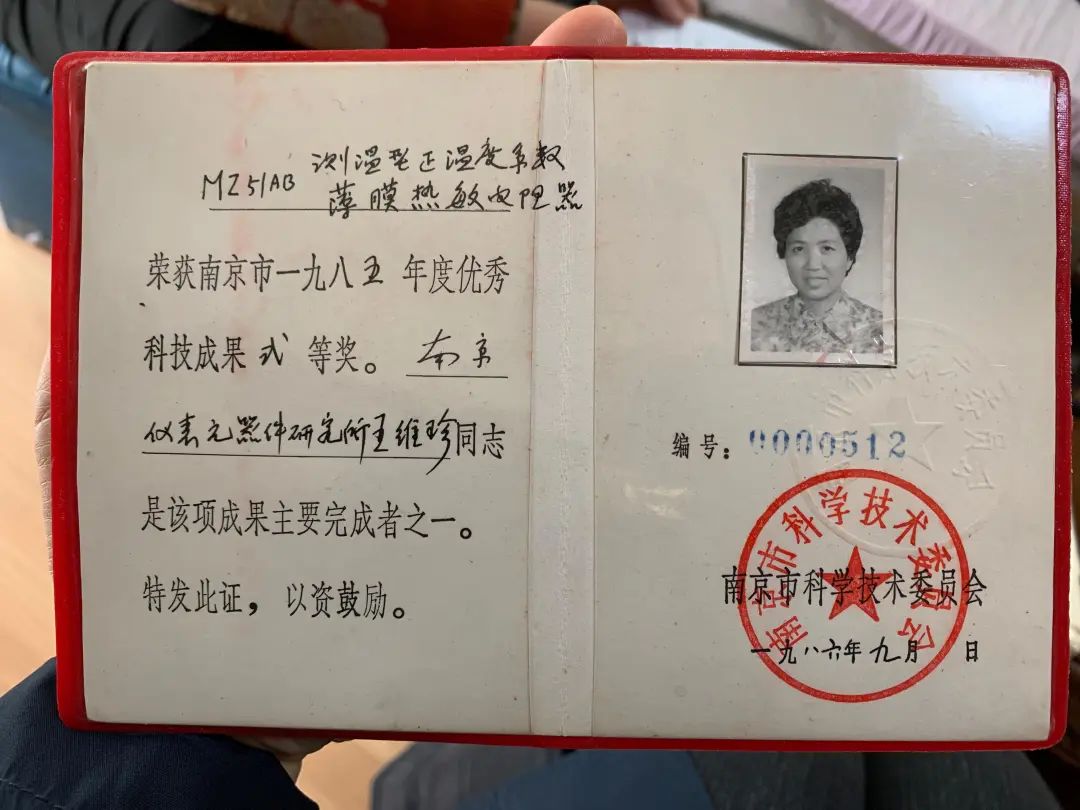 测温型正温度系数
MZ51AB 薄膜热敏电阻器
荣获南京市一九八五年度优秀
科技成果弍等奖。南京
仪表元器件研究所王维珍同志
是该项成果主要完成者之一。
特发此证，以资鼓励。
编号：0000512
南京市科学技术委员会
南京市科学技术委员会
一九八六年九月 日